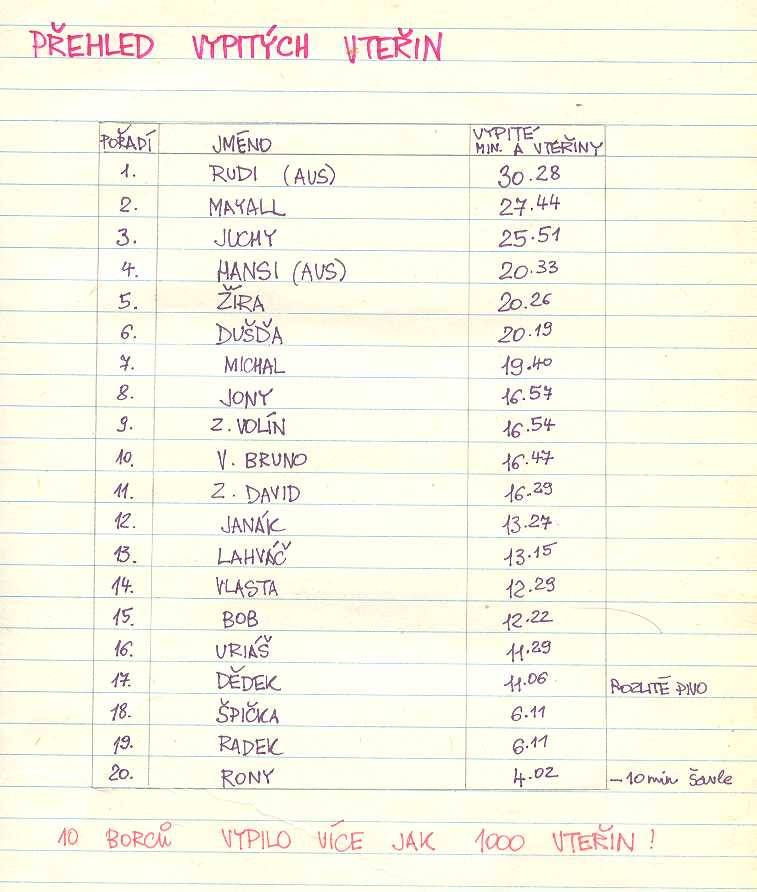 PŘEHLED VYPITÝCH VTEŘIN
POŘADÍ JMÉNO VYPITÉ MIN. A VTEŘINY
1. RUDI (AUS) 30.28
2. MAYALL 27.44
3. JUCHY 25.51
4. HANSI (AUS) 20.33
5. ŽÍRA 20.26
6. DUŠĎA 20.19
7. MICHAL 19.40
8. JONY 16.57
9. Z. VOLÍN 16.54
10. V. BRUNO 16.47
11. Z. DAVID 16.29
12. JANÁK 13.27
13. LAHVÁČ 13.15
14. VLASTA 12.29
15. BOB 12.22
16. URIÁŠ 11.29
17. DĚDEK 11.06 ROZLITÉ PIVO
18. ŠPIČKA 6.11
19. RADEK 6.11
20. RONY 4.02 -10 min šavle
10 BORCŮ VYPILO VÍCE JAK 1000 VTEŘIN!